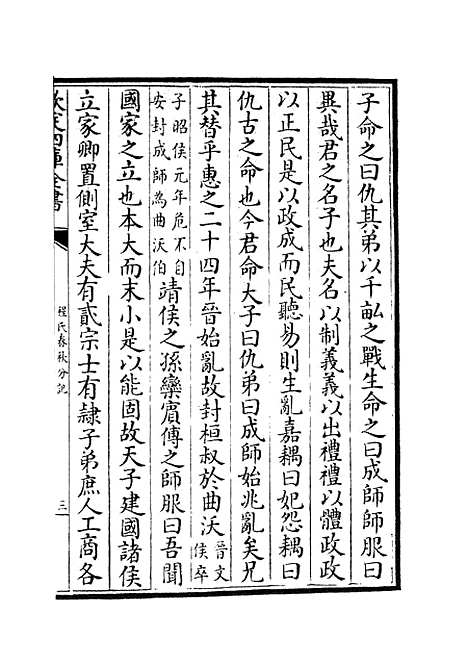 子命之曰仇其弟以千畝之戰生命之曰成師師服曰
異哉君之名子也夫名以制義義以出禮禮以體政政
以正民是以政成而民聽易則生亂嘉耦曰妃怨耦曰
仇古之命也今君命大子曰仇弟曰成師始兆亂矣兄
其替乎惠之二十四年晉始亂故封桓叔於曲沃晉文侯卒
子昭侯元年危不自安封成師為曲沃伯靖侯之孫欒賓傅之師服曰吾聞
國家之立也本大而末小是以能固故天子建國諸侯
立家卿置側室大夫有貳宗士有隸子弟庶人工商各
欽定四庫全書
程氏春秋分記
三